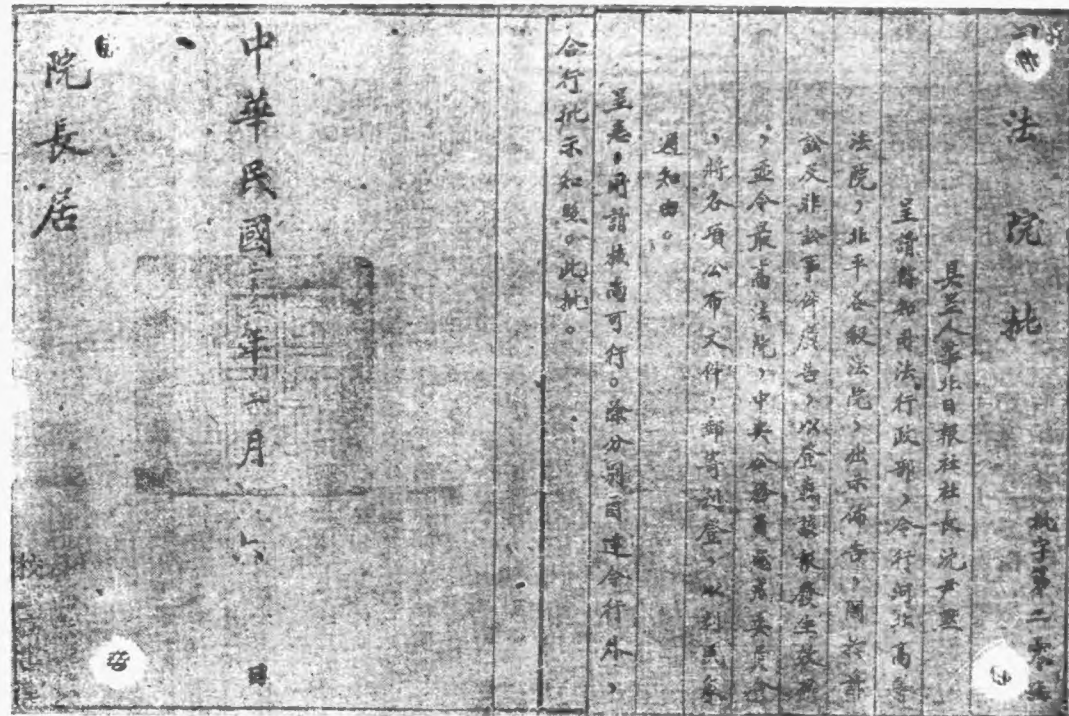 司法院批
批字第二
具呈人華北日報社社長沈尹默
呈請轉知司法行政部，令行河北高等
法院，北平各級法院，出示佈告，關於訴
訟及非訟事件廣告，以登載該報發生效力
，並令最高法院，中央公務員懲戒委員會
，將各項公布文件，郵寄刊登，以利民衆
週知由。
呈悉，所請核尚可行。除分別函達令行外，
合行批示知照。此批。
中華民國 年 月 六 日
院長居
校